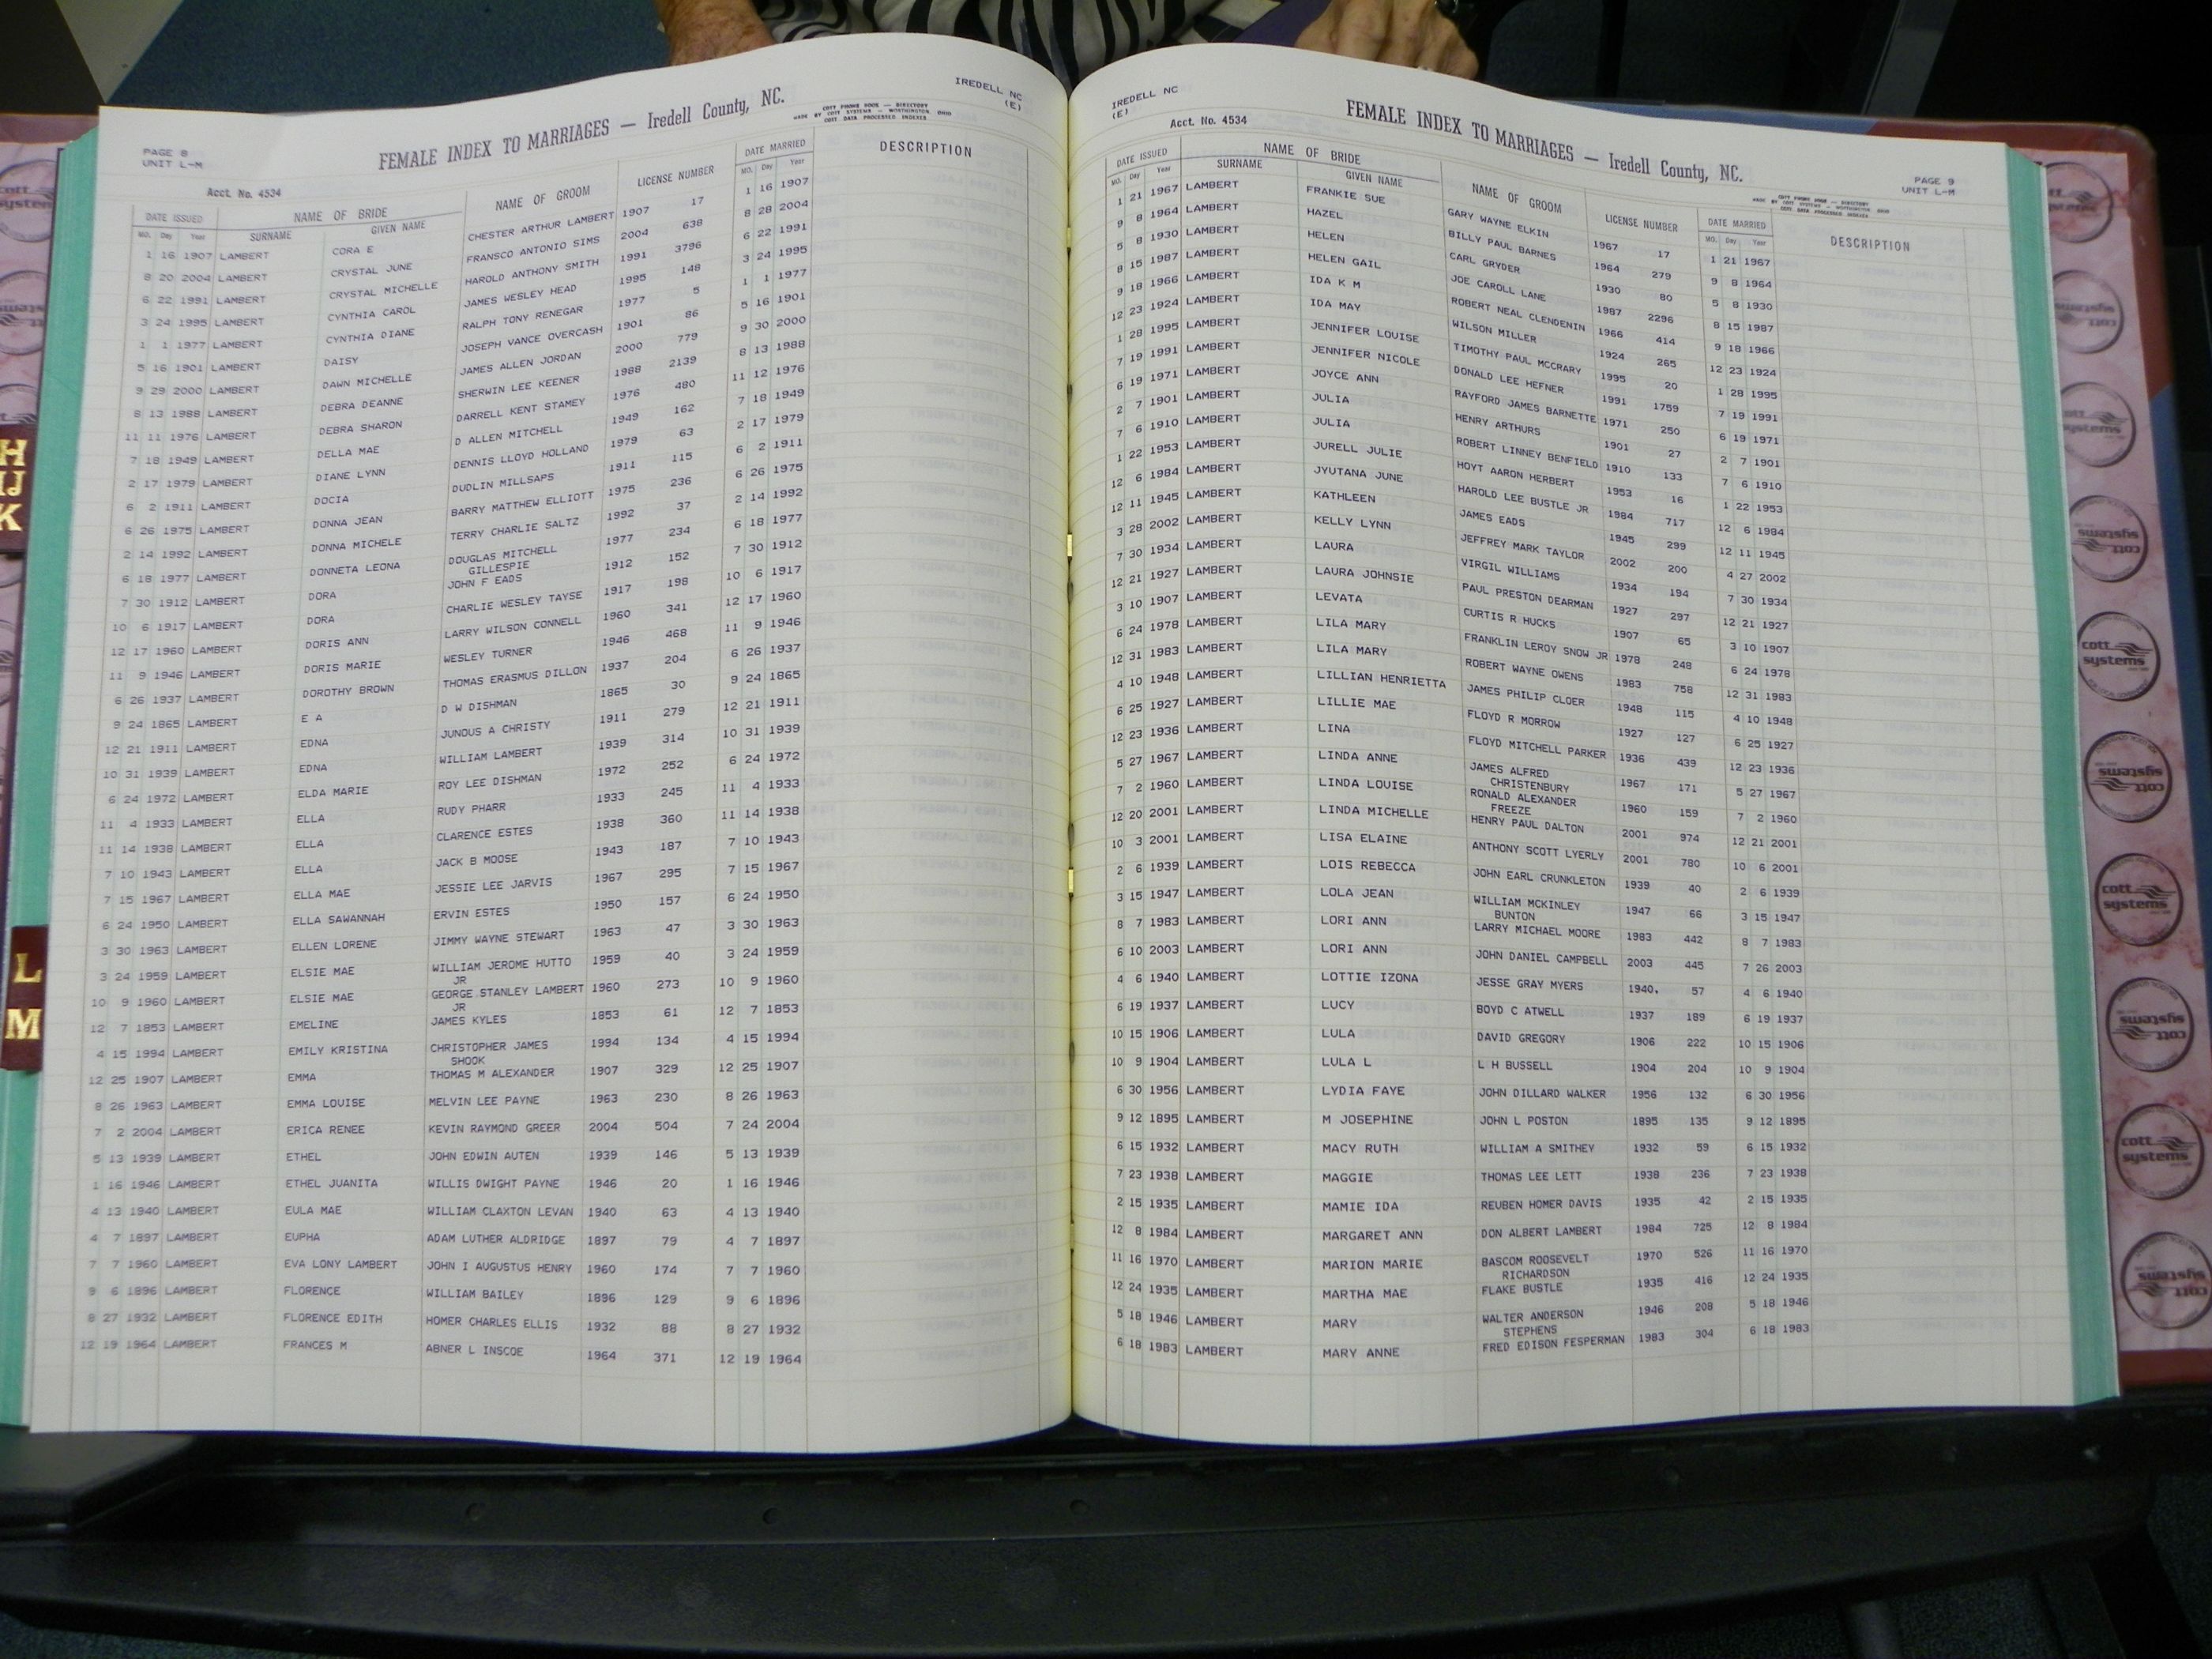 PAGE 8
UNIT L-M
FEMALE INDEX TO MARRIAGES — Iredell County, NC.
IREDELL NC
(E)
COTT PHONE BOOK — DIRECTORY
MADE BY COTT SYSTEMS — WORTHINGTON OHIO
COTT DATA PROCESSED INDEXES
Acct. No. 4534
DATE ISSUED NAME OF BRIDE NAME OF GROOM LICENSE NUMBER DATE MARRIED DESCRIPTION
MO. Day Year SURNAME GIVEN NAME MO. Day Year
1 16 1907 LAMBERT CORA E CHESTER ARTHUR LAMBERT 1907 17 1 16 1907
8 20 2004 LAMBERT CRYSTAL JUNE FRANSCO ANTONIO SIMS 2004 638 8 28 2004
6 22 1991 LAMBERT CRYSTAL MICHELLE HAROLD ANTHONY SMITH 1991 3796 6 22 1991
3 24 1995 LAMBERT CYNTHIA CAROL JAMES WESLEY HEAD 1995 148 3 24 1995
1 1 1977 LAMBERT CYNTHIA DIANE RALPH TONY RENEGAR 1977 5 1 1 1977
5 16 1901 LAMBERT DAISY JOSEPH VANCE OVERCASH 1901 86 5 16 1901
9 29 2000 LAMBERT DAWN MICHELLE JAMES ALLEN JORDAN 2000 779 9 30 2000
8 13 1988 LAMBERT DEBRA DEANNE SHERWIN LEE KEENER 1988 2139 8 13 1988
11 11 1976 LAMBERT DEBRA SHARON DARRELL KENT STAMEY 1976 480 11 12 1976
7 18 1949 LAMBERT DELLA MAE D ALLEN MITCHELL 1949 162 7 18 1949
2 17 1979 LAMBERT DIANE LYNN DENNIS LLOYD HOLLAND 1979 63 2 17 1979
6 2 1911 LAMBERT DOCIA DUDLIN MILLSAPS 1911 115 6 2 1911
6 26 1975 LAMBERT DONNA JEAN BARRY MATTHEW ELLIOTT 1975 236 6 26 1975
2 14 1992 LAMBERT DONNA MICHELE TERRY CHARLIE SALTZ 1992 37 2 14 1992
6 18 1977 LAMBERT DONNETA LEONA DOUGLAS MITCHELL 1977 234 6 18 1977
GILLESPIE
7 30 1912 LAMBERT DORA JOHN F EADS 1912 152 7 30 1912
10 6 1917 LAMBERT DORA CHARLIE WESLEY TAYSE 1917 198 10 6 1917
12 17 1960 LAMBERT DORIS ANN LARRY WILSON CONNELL 1960 341 12 17 1960
11 9 1946 LAMBERT DORIS MARIE WESLEY TURNER 1946 468 11 9 1946
6 26 1937 LAMBERT DOROTHY BROWN THOMAS ERASMUS DILLON 1937 204 6 26 1937
9 24 1865 LAMBERT E A D W DISHMAN 1865 30 9 24 1865
12 21 1911 LAMBERT EDNA JUNOUS A CHRISTY 1911 279 12 21 1911
10 31 1939 LAMBERT EDNA WILLIAM LAMBERT 1939 314 10 31 1939
6 24 1972 LAMBERT ELDA MARIE ROY LEE DISHMAN 1972 252 6 24 1972
11 4 1933 LAMBERT ELLA RUDY PHARR 1933 245 11 4 1933
11 14 1938 LAMBERT ELLA CLARENCE ESTES 1938 360 11 14 1938
7 10 1943 LAMBERT ELLA JACK B MOOSE 1943 187 7 10 1943
7 15 1967 LAMBERT ELLA MAE JESSIE LEE JARVIS 1967 295 7 15 1967
6 24 1950 LAMBERT ELLA SAWANNAH ERVIN ESTES 1950 157 6 24 1950
3 30 1963 LAMBERT ELLEN LORENE JIMMY WAYNE STEWART 1963 47 3 30 1963
3 24 1959 LAMBERT ELSIE MAE WILLIAM JEROME HUTTO 1959 40 3 24 1959
JR
10 9 1960 LAMBERT ELSIE MAE GEORGE STANLEY LAMBERT 1960 273 10 9 1960
JR
12 7 1853 LAMBERT EMELINE JAMES KYLES 1853 61 12 7 1853
4 15 1994 LAMBERT EMILY KRISTINA CHRISTOPHER JAMES 1994 134 4 15 1994
SHOOK
12 25 1907 LAMBERT EMMA THOMAS M ALEXANDER 1907 329 12 25 1907
8 26 1963 LAMBERT EMMA LOUISE MELVIN LEE PAYNE 1963 230 8 26 1963
7 2 2004 LAMBERT ERICA RENEE KEVIN RAYMOND GREER 2004 504 7 24 2004
5 13 1939 LAMBERT ETHEL JOHN EDWIN AUTEN 1939 146 5 13 1939
1 16 1946 LAMBERT ETHEL JUANITA WILLIS DWIGHT PAYNE 1946 20 1 16 1946
4 13 1940 LAMBERT EULA MAE WILLIAM CLAXTON LEVAN 1940 63 4 13 1940
4 7 1897 LAMBERT EUPHA ADAM LUTHER ALDRIDGE 1897 79 4 7 1897
7 7 1960 LAMBERT EVA LONY LAMBERT JOHN I AUGUSTUS HENRY 1960 174 7 7 1960
9 6 1896 LAMBERT FLORENCE WILLIAM BAILEY 1896 129 9 6 1896
8 27 1932 LAMBERT FLORENCE EDITH HOMER CHARLES ELLIS 1932 88 8 27 1932
12 19 1964 LAMBERT FRANCES M ABNER L INSCOE 1964 371 12 19 1964
IREDELL NC
(E)
Acct. No. 4534
FEMALE INDEX TO MARRIAGES — Iredell County, NC.
PAGE 9
UNIT L-M
DATE ISSUED NAME OF BRIDE NAME OF GROOM LICENSE NUMBER DATE MARRIED DESCRIPTION
MO. Day Year SURNAME GIVEN NAME MO. Day Year
1 21 1967 LAMBERT FRANKIE SUE GARY WAYNE ELKIN 1967 17 1 21 1967
9 8 1964 LAMBERT HAZEL BILLY PAUL BARNES 1964 279 9 8 1964
5 8 1930 LAMBERT HELEN CARL GRYDER 1930 80 5 8 1930
8 15 1987 LAMBERT HELEN GAIL JOE CAROLL LANE 1987 2296 8 15 1987
9 18 1966 LAMBERT IDA K M ROBERT NEAL CLENDENIN 1966 414 9 18 1966
12 23 1924 LAMBERT IDA MAY WILSON MILLER 1924 265 12 23 1924
1 28 1995 LAMBERT JENNIFER LOUISE TIMOTHY PAUL MCCRARY 1995 20 1 28 1995
7 19 1991 LAMBERT JENNIFER NICOLE DONALD LEE HEFNER 1991 1759 7 19 1991
6 19 1971 LAMBERT JOYCE ANN RAYFORD JAMES BARNETTE 1971 250 6 19 1971
2 7 1901 LAMBERT JULIA HENRY ARTHURS 1901 27 2 7 1901
7 6 1910 LAMBERT JULIA ROBERT LINNEY BENFIELD 1910 133 7 6 1910
1 22 1953 LAMBERT JURELL JULIE HOYT AARON HERBERT 1953 16 1 22 1953
12 6 1984 LAMBERT JYUTANA JUNE HAROLD LEE BUSTLE JR 1984 717 12 6 1984
12 11 1945 LAMBERT KATHLEEN JAMES EADS 1945 299 12 11 1945
3 28 2002 LAMBERT KELLY LYNN JEFFREY MARK TAYLOR 2002 200 4 27 2002
7 30 1934 LAMBERT LAURA VIRGIL WILLIAMS 1934 194 7 30 1934
12 21 1927 LAMBERT LAURA JOHNSIE PAUL PRESTON DEARMAN 1927 297 12 21 1927
3 10 1907 LAMBERT LEVATA CURTIS R HUCKS 1907 65 3 10 1907
6 24 1978 LAMBERT LILA MARY FRANKLIN LEROY SNOW JR 1978 248 6 24 1978
12 31 1983 LAMBERT LILA MARY ROBERT WAYNE OWENS 1983 758 12 31 1983
4 10 1948 LAMBERT LILLIAN HENRIETTA JAMES PHILIP CLOER 1948 115 4 10 1948
6 25 1927 LAMBERT LILLIE MAE FLOYD R MORROW 1927 127 6 25 1927
12 23 1936 LAMBERT LINA FLOYD MITCHELL PARKER 1936 439 12 23 1936
5 27 1967 LAMBERT LINDA ANNE JAMES ALFRED 1967 171 5 27 1967
CHRISTENBURY
7 2 1960 LAMBERT LINDA LOUISE RONALD ALEXANDER 1960 159 7 2 1960
FREEZE
12 20 2001 LAMBERT LINDA MICHELLE HENRY PAUL DALTON 2001 974 12 21 2001
10 3 2001 LAMBERT LISA ELAINE ANTHONY SCOTT LYERLY 2001 780 10 6 2001
2 6 1939 LAMBERT LOIS REBECCA JOHN EARL CRUNKLETON 1939 40 2 6 1939
3 15 1947 LAMBERT LOLA JEAN WILLIAM MCKINLEY 1947 66 3 15 1947
BUNTON
8 7 1983 LAMBERT LORI ANN LARRY MICHAEL MOORE 1983 442 8 7 1983
6 10 2003 LAMBERT LORI ANN JOHN DANIEL CAMPBELL 2003 445 7 26 2003
4 6 1940 LAMBERT LOTTIE IZONA JESSE GRAY MYERS 1940. 57 4 6 1940
6 19 1937 LAMBERT LUCY BOYD C ATWELL 1937 189 6 19 1937
10 15 1906 LAMBERT LULA DAVID GREGORY 1906 222 10 15 1906
10 9 1904 LAMBERT LULA L L H BUSSELL 1904 204 10 9 1904
6 30 1956 LAMBERT LYDIA FAYE JOHN DILLARD WALKER 1956 132 6 30 1956
9 12 1895 LAMBERT M JOSEPHINE JOHN L POSTON 1895 135 9 12 1895
6 15 1932 LAMBERT MACY RUTH WILLIAM A SMITHEY 1932 59 6 15 1932
7 23 1938 LAMBERT MAGGIE THOMAS LEE LETT 1938 236 7 23 1938
2 15 1935 LAMBERT MAMIE IDA REUBEN HOMER DAVIS 1935 42 2 15 1935
12 8 1984 LAMBERT MARGARET ANN DON ALBERT LAMBERT 1984 725 12 8 1984
11 16 1970 LAMBERT MARION MARIE BASCOM ROOSEVELT 1970 526 11 16 1970
RICHARDSON
12 24 1935 LAMBERT MARTHA MAE FLAKE BUSTLE 1935 416 12 24 1935
5 18 1946 LAMBERT MARY WALTER ANDERSON 1946 208 5 18 1946
STEPHENS
6 18 1983 LAMBERT MARY ANNE FRED EDISON FESPERMAN 1983 304 6 18 1983
H
IJ
K
L
M
cott
systems